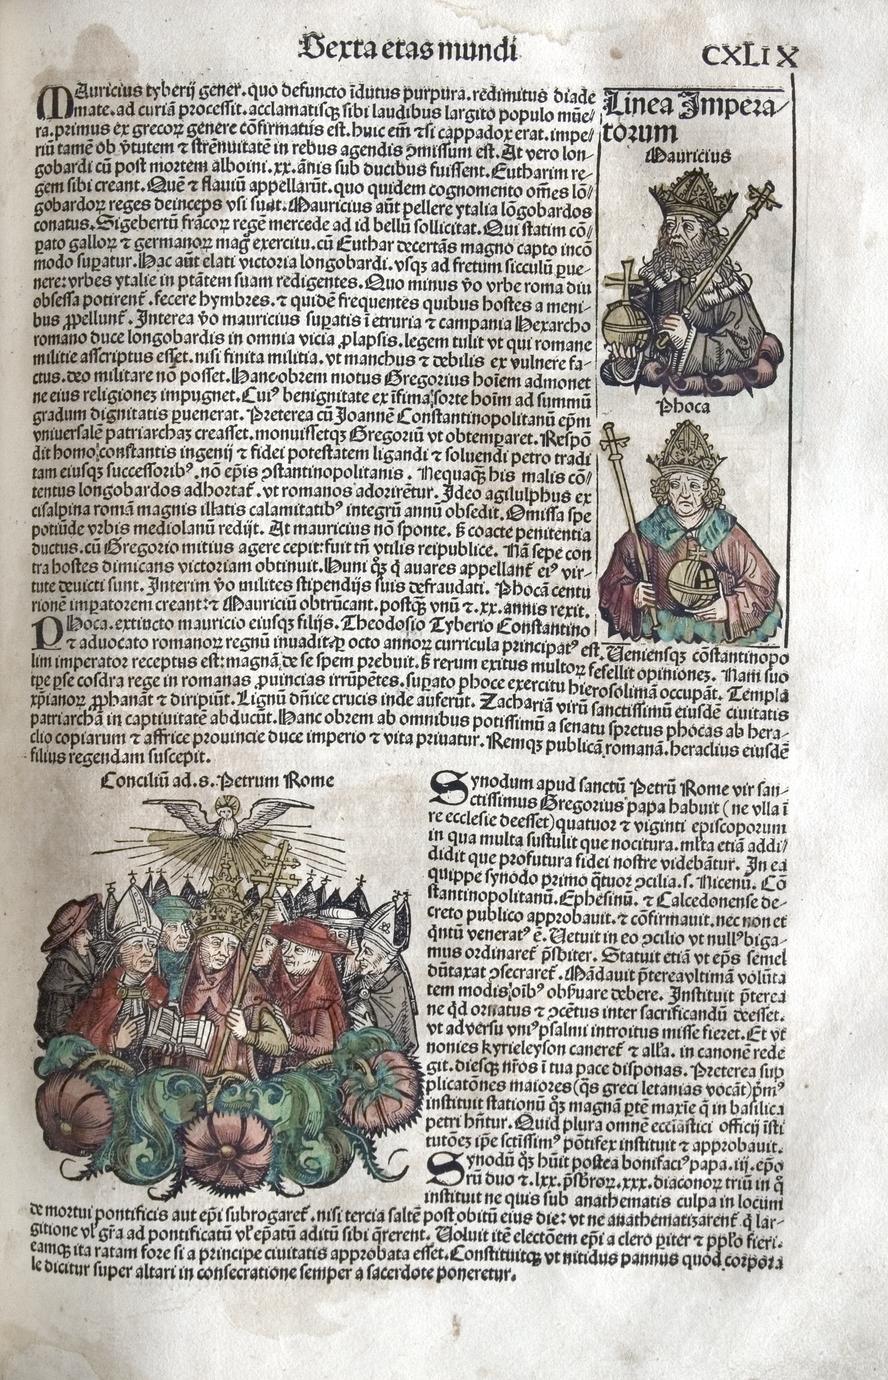 Sexta etas mundi
CXLIX
Linea Impera/
torum
Mauricius
Phoca
MAuricius tyberij gener. quo defuncto īdutus purpura. redimitus diade
mate. ad curiā processit. acclamatisqꝫ sibi laudibus largito populo mūe/
ra. primus ex grecoꝝ genere cōfirmatus est. huic em̄ ⁊si cappadox erat. impe/
riū tamē ob v̄tutem ⁊ strēnuitatē in rebus agendis ꝯmissum est. At vero lon-
gobardi cū post mortem alboini. xx. ānis sub ducibus fuissent. Eutharim re-
gem sibi creant. Quē ⁊ flauiū appellarūt. quo quidem cognomento om̄es lō/
gobardoꝝ reges deinceps vsi sunt. Mauricius aūt pellere ytalia lōgobardos
conatus. Sigebertū frācoꝝ regē mercede ad id bellū sollicitat. Qui statim cō/
ꝑato galloꝝ ⁊ germanoꝝ mag° exercitu. cū Euthar decertās magno capto incō
modo suꝑatur. Hac aūt elati victoria longobardi. vsqꝫ ad fretum sicculū ꝑue-
nere: vrbes ytalie in ptātem suam redigentes. Quo minus v̄o vrbe roma diu
obsessa potirent᷑. fecere hymbres. ⁊ quidē frequentes quibus hostes a meni-
bus ꝓpellunt᷑. Interea v̄o mauricius suꝑatis ī etruria ⁊ campania Hexarcho
romano duce longobardis in omnia vicia ꝓlapsis. legem tulit vt qui romane
militie asscriptus esset. nisi finita militia. vt manchus ⁊ debilis ex vulnere fa-
ctus. deo militare nō posset. Hanc obrem motus Gregorius hoīem admonet
ne eius religionē impugnet. Cuiꝰ benignitate ex īfima sorte hoīm ad summū
gradum dignitatis ꝑuenerat. Preterea cū Joannē Constantinopolitanū ep̄m
vniuersalē patriarchaꝫ creasset. monuissetqꝫ Gregoriū vt obtemꝑaret. Respō
dit homo constantis ingenij ⁊ fidei potestatem ligandi ⁊ soluendi petro tradi
tam eiusqꝫ successoribꝰ. nō ep̄is ꝯstantinopolitanis. Nequaqꝫ his malis cō/
tentus longobardos adhortat᷑. vt romanos adorirētur. Ideo agilulphus ex
cisalpina romā magnis illatis calamitatibꝰ integrū annū obsedit. Omissa spe
potiūde vrbis mediolanū redijt. At mauricius nō sponte. sꝫ coacte penitentia
ductus. cū Gregorio mitius agere cepit: fuit tn̄ vtilis reipublice. Nā sepe con
tra hostes dimicans victoriam obtinuit. Huni qꝫ q̄ auares appellant᷑ eiꝰ vir-
tute deuicti sunt. Interim v̄o milites stipendijs suis defraudati. Phocā centu
rionē imꝑatorem creant: ⁊ Mauriciū obtrūcant. postqꝫ vnū ⁊. xx. annis rexit.
PHoca. extincto mauricio eiusqꝫ filijs. Theodosio Tyberio Constantino
⁊ aduocato romanoꝝ regnū inuadit. ꝑ octo annoꝝ curricula principatꝰ est. Ueniensqꝫ cōstantinopo
lim imperator receptus est: magnā de se spem prebuit. sꝫ rerum exitus multoꝝ fefellit opinionez. Nam suo
tꝑe ꝑse cosdra rege in romanas ꝓuincias irrūpentes. suꝑato phoce exercitu hierosolimā occupāt. Templa
xp̄ianoꝝ ꝓphanāt ⁊ diripiūt. Lignū dn̄ice crucis inde auferūt. Zachariā virū sanctissimū eiusdē ciuitatis
patriarchā in captiuitatē abducūt. Hanc obrem ab omnibus potissimū a senatu spretus phocas ab hera-
clio copiarum ⁊ affrice prouincie duce imperio ⁊ vita priuatur. Remqꝫ publicā romanā. heraclius eiusdē
filius regendam suscepit.
Conciliū ad. s. Petrum Rome
SYnodum apud sanctū Petrū Rome vir san-
ctissimus Gregorius papa habuit (ne vlla ī
re ecclesie deesset) quatuor ⁊ viginti episcoporum
in qua multa sustulit que nocitura. ml̄ta etiā addi/
didit que profutura fidei nostre videbātur. In ea
quippe synodo primo q̄tuor ꝯcilia. s. Nicenū. Cō
stantinopolitanū. Ephesinū. ⁊ Calcedonense de-
creto publico approbauit. ⁊ cōfirmauit. nec non et
q̄ntū veneratꝰ ē. Uetuit in eo ꝯcilio vt nullꝰ biga-
mus ordinaret᷑ p̄sbiter. Statuit etiā vt ep̄s semel
dūtaxat ꝯsecraret᷑. Mādauit p̄terea vltimā volūta
tem modis oībꝰ obꝑuare debere. Instituit p̄terea
ne q̄d ornatus ⁊ ꝯcētus inter sacrificandū deesset.
vt aduersu vniꝰ psalmi introitus misse fieret. Et vt
nonies kyrieleyson caneret᷑ ⁊ all̄a. in canonē rede
git. diesqꝫ nr̄os ī tua pace disponas. Preterea sup
plicatōnes maiores (q̄s greci letanias vocāt) p̄mꝰ
instituit stationū qꝫ magnā ꝑtē maxīe q̄ in basilica
petri hn̄tur. Quid plura omnē ecciāstici officij īsti
tutōeꝫ ip̄e sctīssimꝰ pōntifex instituit ⁊ approbauit.
SYnodū qꝫ hūit postea bonifaciꝰ papa. iij. ep̄o
Rū duo ⁊. lxx. p̄sbr̄oꝝ. xxx. diaconoꝝ triū in q̄
instituit ne quis sub anathematis culpa in locum
de mortui pontificis aut ep̄i subrogaret᷑. nisi tercia saltē post obitū eius die: vt ne anathematizarent᷑ q̄ lar-
gitione vl̓ gr̄a ad pontificatū vl̓ ep̄atū aditū sibi q̄rerent. Uoluit itē electōem ep̄i a clero ꝑiter ⁊ pp̄lo fieri.
eamqꝫ ita ratam fore si a principe ciuitatis approbata esset. Constituitqꝫ vt nitidus pannus quod corpora
le dicitur super altari in consecratione semper a sacerdote poneretur.